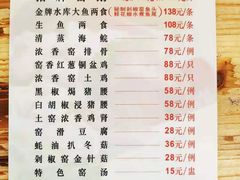 金牌水库大鱼两食 138元/条
生鱼两食 108元/条
清蒸海鲩 78元/条
浓香窑排骨 78元/例
窑香红葱铜盆鸡 88元/只
浓香窑土鸡 88元/只
黑椒焗猪腰 58元/例
白胡椒浸猪腰 58元/例
土窑浓香鸡肾 58元/例
窑滑豆腐 28元/例
蚝油扒冬菇 36元/例
剁椒窑金针菇 28元/例
特色窑汤 15元/盅